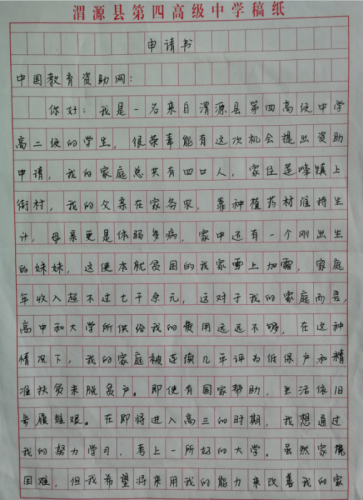 渭源县第四高级中学稿纸
申请书
中国教育资助网：
你好：我是一名来自渭源县第四高级中学
高二级的学生，很荣幸能有这次机会提出资助
申请，我的家庭总共有四口人，家住莲峰镇上
街村，我的父亲在家务农，靠种植药材维持生
计，母亲更是体弱多病，家中还有一个刚出生
的妹妹，这使本就贫困的我家雪上加霜，家庭
年收入超不过七千余元，这对于我的家庭而言，
高中和大学所供给我的费用远远不够，在这种
情况下，我的家庭被连续几年评为低保户和精
准扶贫未脱贫户。即使有国家帮助，生活依旧
步履维艰。在即将进入高三的时期，我想通过
我的努力学习，考上一所好的大学。虽然家境
困难，但我希望将来用我的能力来改善我的家